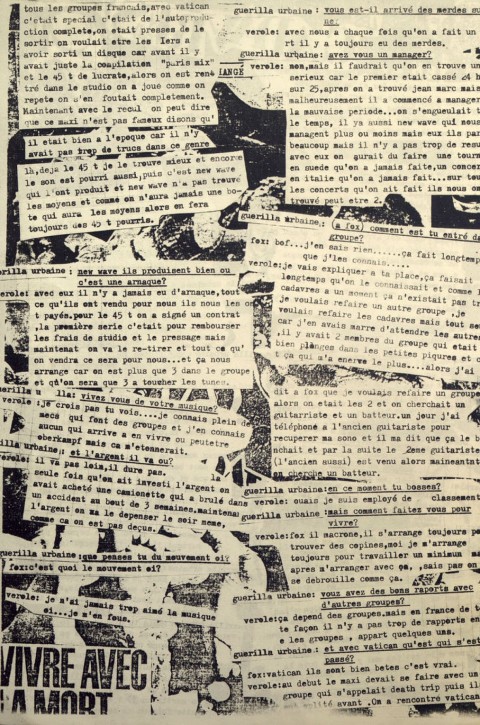 tous les groupes francais,avec vatican
c'etait special c'etait de l'autoproduc
tion complete,on etait presses de le
sortir on voulait etre les 1ers a
avoir sorti un disque car avant il y
avait juste la compilation "paris mix"
et le 45 t de lucrate,alors on est ren
tré dans le studio on a joue comme on
repete on s'en foutait completement.
Maintenant avec le recul on peut dire
que ce maxi n'est pas fameux disons qu'
il etait bien a l'epoque car il n'y
avait pas trop de trucs dans ce genre
là,deja le 45 t je le trouve mieux et encore
le son est pourri aussi,puis c'est new wave
qui l'ont produit et new wave n'a pas trouvé
les moyens et comme on n'aura jamais une bo-
te qui aura les moyens alors on fera
toujours des 45 t pourris.
erilla urbaine: new wave ils produisent bien ou
c'est une arnaque?
verole: avec eux il n'y a jamais eu d'arnaque,tout
ce qu'ils ont vendu pour nous ils nous les on
t payés.pour le 45 t on a signé un contrat
,la première serie c'etait pour rembourser
les frais de studio et le pressage mais
maintenat on va le re-tirer et tout ce qu'
on vendra ce sera pour nous...et ça nous
arrange car on est plus que 3 dans le groupe
et qu'on sera que 3 a toucher les tunes.
vivez vous de votre musique?
verole :je crois pas tu vois....je connais plein de
mecs qui font des groupes et j'en connais
aucun qui arrive a en vivre ou peutetre
oberkampf mais ca m'etonnerait.
illa urbaine: et l'argent il va ou?
verole: il va pas loin,il dure pas.
seule fois qu'on ait investi l'argent on
avait acheté une camionette qui a brulé dans
un accident au bout de 3 semaines.maintenant
l'argent on va le depenser le soir meme,
comme ca on est pas deçus.
guerilla urbaine:que penses tu du mouvement oi?
fox:c'est quoi le mouvement oi?
verole: je n'ai jamais trop aimé la musique
oi...je m'en fous.
VIVRE AVEC
LA MORT
guerilla urbaine: vous est-il arrivé des merdes su
verole: avec nous a chaque fois qu'on a fait un
rt il y a toujours eu des merdes.
guerilla urbaine: avez vous un manager?
verole: non,mais il faudrait qu'on en trouve un
serieux car le premier etait cassé 24 h
sur 25,apres on a trouvé jean marc mais
malheureusement il a commencé a manager
la mauvaise periode...on s'engueulait t
le temps, il ya aussi new wave qui nous
managent plus ou moins mais eux ils par
beaucoup mais il n'y a pas trop de resu
avec eux on aurait du faire une tourn
en suede qu'on a jamais faite,un concer
en italie qu'on a jamais fait...sur tou
les concerts qu'on ait fait ils nous on
trouvé peut etre 2.
guerilla urbaine: (a fox) comment est tu entré da
groupe?
fox: bof...j'en sais rien......ça fait longtemp
que j'les connais.....
verole:je vais expliquer a ta place,ça faisait
longtemps qu'on le connaissait et comme l
cadavres a un moment ça n'existait pas tr
je voulais refaire un autre groupe ,je
voulais refaire les cadavres mais tout se
car j'en avais marre d'attendre les autre
y avait 2 membres du groupe qui etait
bien plongés dans les petites piqures et c
t ça qui m'a enerve le plus....alors j'ai
dit a fox que je voulais refaire un groupe
alors on etait les 2 et on cherchait un
guitarriste et un batteur.un jour j'ai
téléphoné a l'ancien guitariste pour
recuperer ma sono et il ma dit que ça le b
nchait et par la suite le 2eme guitariste
(l'ancien aussi) est venu alors maintenant
on cherche un batteur.
guerilla urbaine:en ce moment tu bosses?
verole: ouais je suis employé de classement
guerilla urbaine:mais comment faites vous pour
vivre?
verole:fox il maçonne,il s'arrange toujours p
trouver des copines,moi je m'arrange
toujours pour travailler un minimum ma
apres m'arranger avec ça, ,sais pas on
se debrouille comme ça.
guerilla urbaine: vous avez des bons raports avec
d'autres groupes?
verole:ça depend des groupes,mais en france de t
te façon il n'y a pas trop de rapports en
e les groupes , appart quelques uns.
guerilla urbaine: et avec vatican qu'est qui s'est
passé?
fox:vatican ils sont bien betes c'est vrai.
verole:au debut le maxi devait se faire avec un
groupe qui s'appelait death trip puis il
avant .On a rencontré vatican